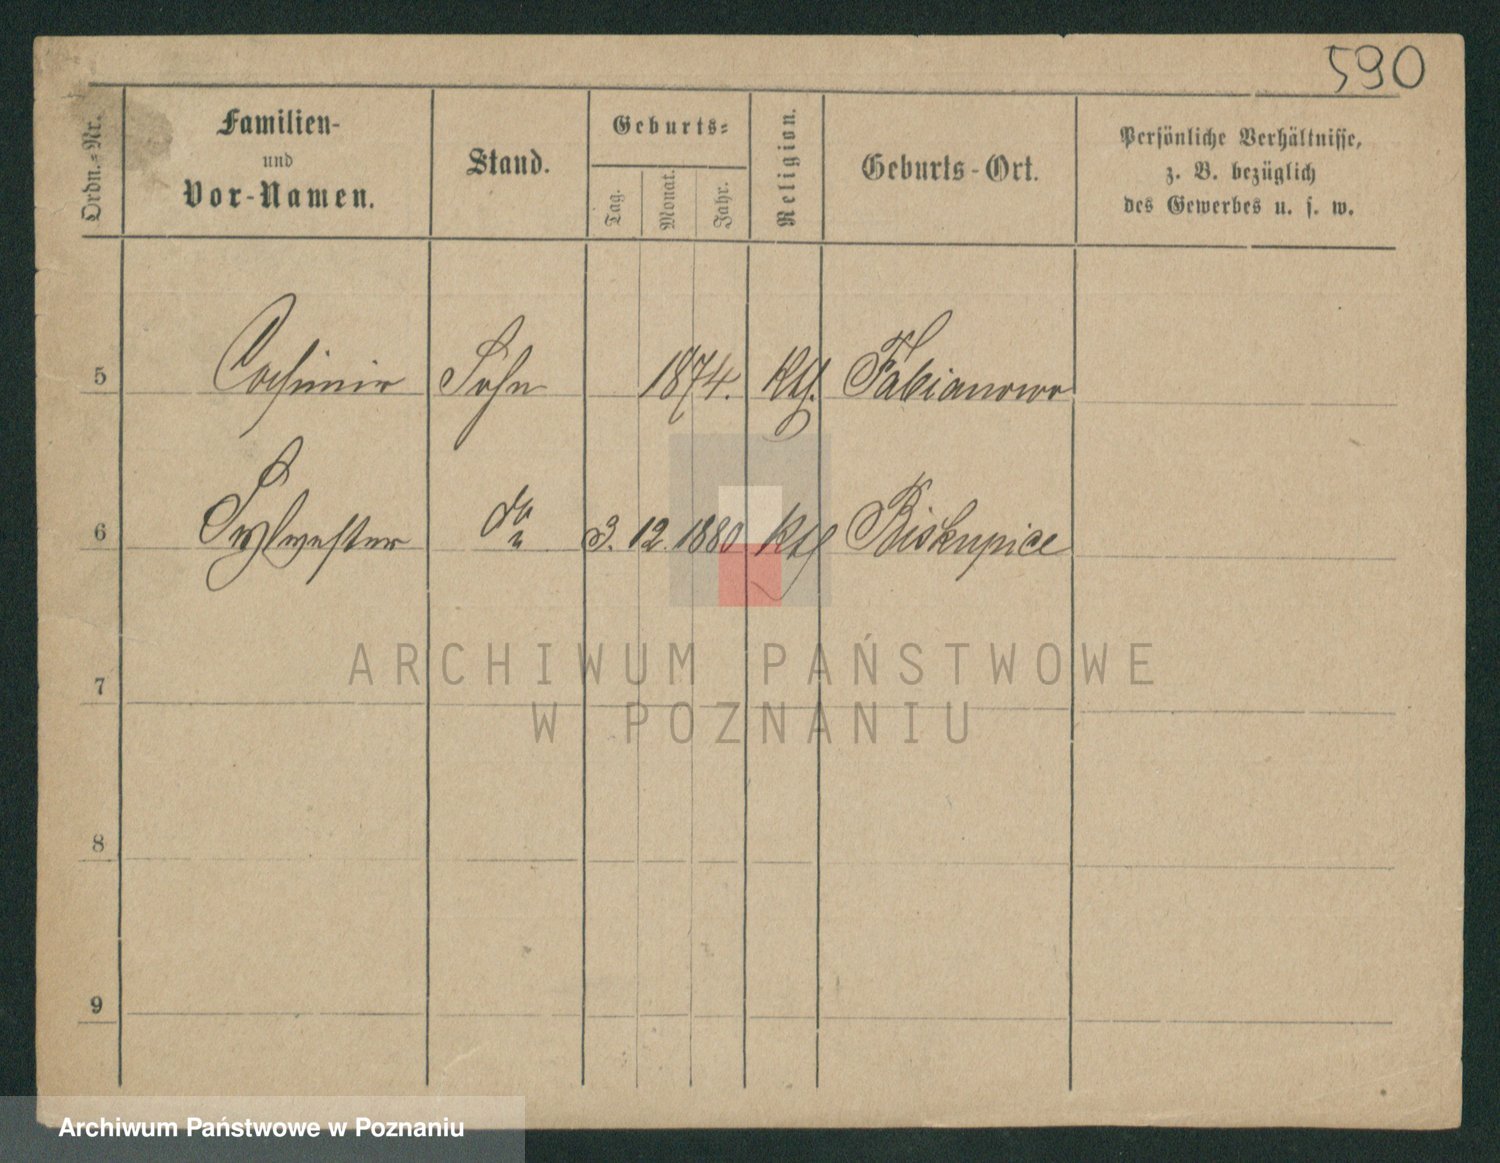 590
Ordn.=Nr.
Familien-
und
Vor-Namen.
Stand.
Geburts=
Tag.
Monat.
Jahr.
Religion.
Geburts-Ort.
Persönliche Verhältnisse,
z. B. bezüglich
des Gewerbes u. s. w.
5 Casimir Sohn 1874. Kth. Fabianowo
6 Sylwester do 3. 12. 1880 Kth Biskupice
7
ARCHIWUM PAŃSTWOWE
W POZNANIU
8
9
Archiwum Państwowe w Poznaniu